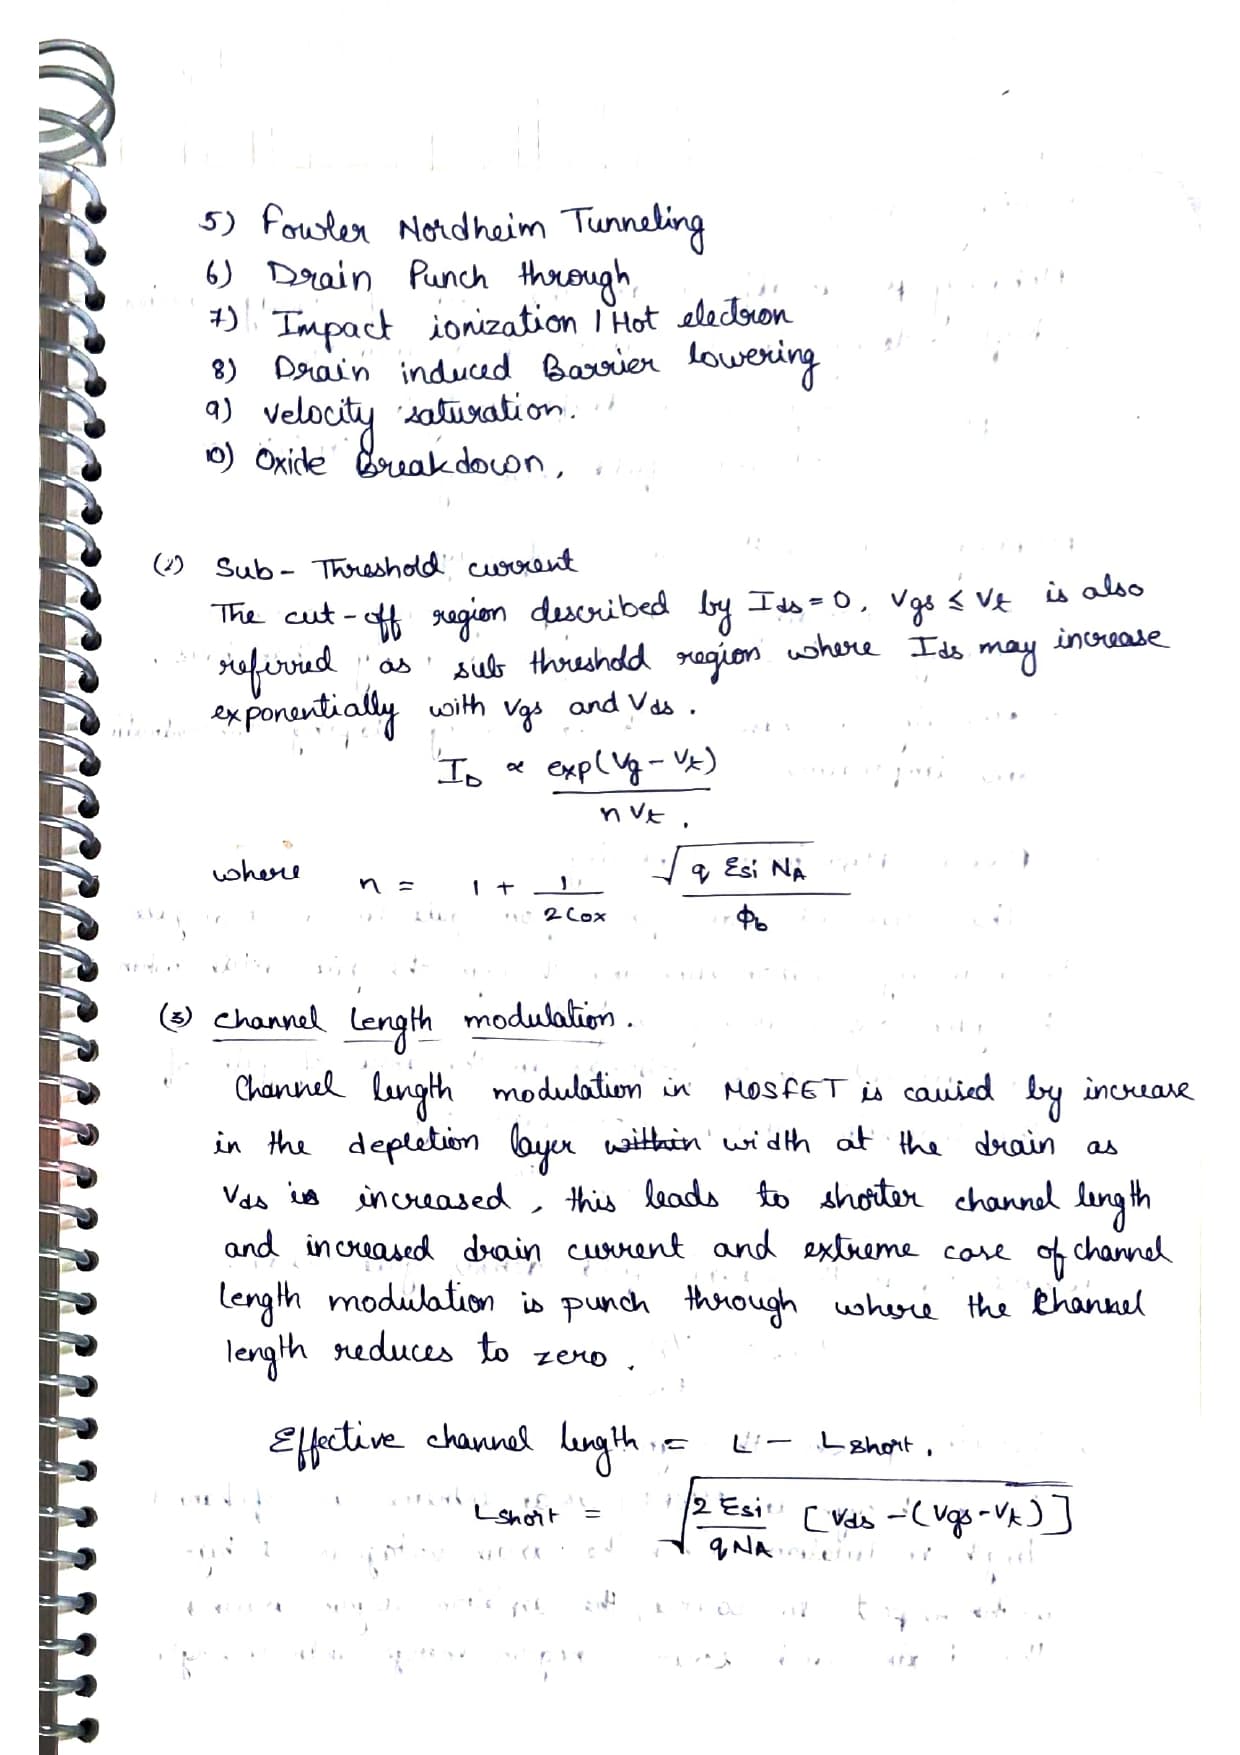 5) Fowler Nordheim Tunneling
6) Drain Punch through
7) Impact ionization / Hot electron
8) Drain induced Barrier lowering
9) velocity saturation.
10) Oxide Breakdown.
(2) Sub - Threshold current
The cut-off region described by Ids = 0, Vgs ≤ Vt is also
referred as sub threshold region where Ids may increase
exponentially with Vgs and Vds.
I_D ∝ exp(Vg - Vt) / n Vt.
where n = 1 + 1/(2Cox) √(q Esi NA) / Φb
(3) Channel length modulation.
Channel length modulation in MOSFET is caused by increase
in the depletion layer ~~within~~ width at the drain as
Vds is increased, this leads to shorter channel length
and increased drain current and extreme case of channel
length modulation is punch through where the channel
length reduces to zero.
Effective channel length = L - Lshort.
Lshort = √(2 Esi / q NA [Vds - (Vgs - Vt)])